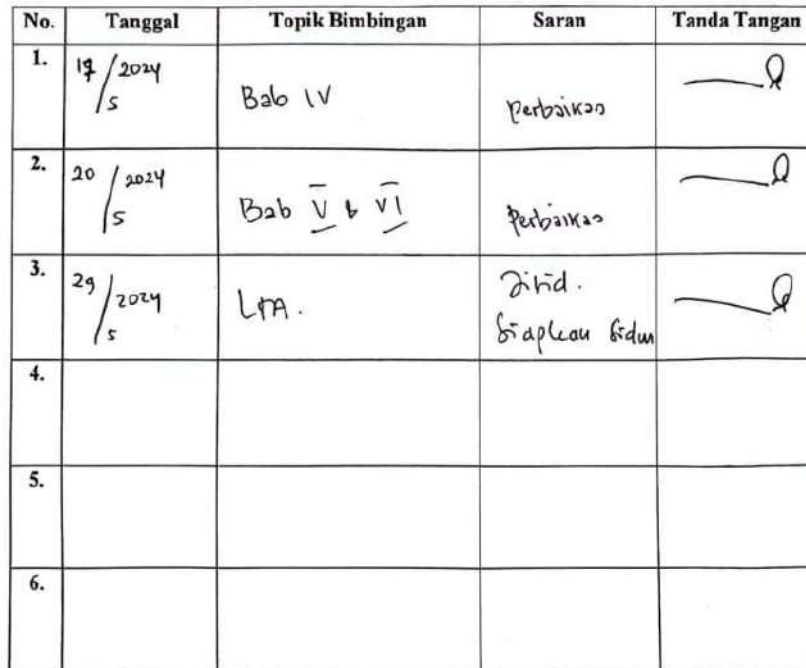 No. Tanggal Topik Bimbingan Saran Tanda Tangan
1. 17/5 2024 Bab IV Perbaikan
2. 20/5 2024 Bab V & VI Perbaikan
3. 29/5 2024 LTA. Jilid.
Siapkan Sidan
4.
5.
6.